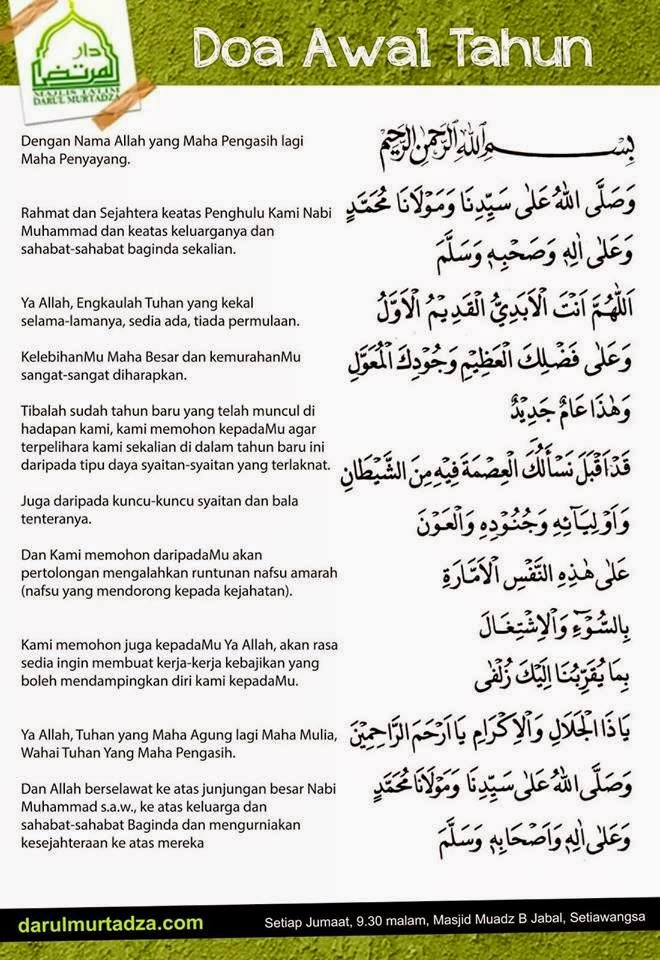 دار
المرتضى
MAJLIS TA'LIM
DARUL MURTADZA
Doa Awal Tahun
Dengan Nama Allah yang Maha Pengasih lagi
Maha Penyayang.
بِسْـــــمِ اللهِ الرَّحْمٰنِ الرَّحِيْمِ
Rahmat dan Sejahtera keatas Penghulu Kami Nabi
Muhammad dan keatas keluarganya dan
sahabat-sahabat baginda sekalian.
وَصَلَّى اللهُ عَلٰى سَيِّدِنَا وَمَوْلَانَا مُحَمَّدٍ
وَعَلٰى اٰلِهٖ وَصَحْبِهٖ وَسَلَّمَ
Ya Allah, Engkaulah Tuhan yang kekal
selama-lamanya, sedia ada, tiada permulaan.
اَللّٰهُمَّ اَنْتَ الْاَبَدِيُّ الْقَدِيْمُ الْاَوَّلُ
KelebihanMu Maha Besar dan kemurahanMu
sangat-sangat diharapkan.
وَعَلٰى فَضْلِكَ الْعَظِيْمِ وَجُوْدِكَ الْمُعَوَّلِ
Tibalah sudah tahun baru yang telah muncul di
hadapan kami, kami memohon kepadaMu agar
terpelihara kami sekalian di dalam tahun baru ini
daripada tipu daya syaitan-syaitan yang terlaknat.
وَهٰذَا عَامٌ جَدِيْدٌ
قَدْاَقْبَلَ نَسْأَلُكَ الْعِصْمَةَ فِيْهِ مِنَ الشَّيْطَانِ
Juga daripada kuncu-kuncu syaitan dan bala
tenteranya.
وَاَوْلِيَآئِهٖ وَجُنُوْدِهٖ وَالْعَوْنَ
Dan Kami memohon daripadaMu akan
pertolongan mengalahkan runtunan nafsu amarah
(nafsu yang mendorong kepada kejahatan).
عَلٰى هٰذِهِ النَّفْسِ الْاَمَّارَةِ
بِالسُّوْٓءِ وَالْاِشْتِغَالَ
Kami memohon juga kepadaMu Ya Allah, akan rasa
sedia ingin membuat kerja-kerja kebajikan yang
boleh mendampingkan diri kami kepadaMu.
بِمَا يُقَرِّبُنَا اِلَيْكَ زُلْفٰى
Ya Allah, Tuhan yang Maha Agung lagi Maha Mulia,
Wahai Tuhan Yang Maha Pengasih.
يَاذَا الْجَلَالِ وَالْاِكْرَامِ يَا اَرْحَمَ الرَّاحِمِيْنَ
Dan Allah berselawat ke atas junjungan besar Nabi
Muhammad s.a.w., ke atas keluarga dan
sahabat-sahabat Baginda dan mengurniakan
kesejahteraan ke atas mereka
وَصَلَّى اللهُ عَلٰى سَيِّدِنَا وَمَوْلَانَا مُحَمَّدٍ
وَعَلٰى اٰلِهٖ وَاَصْحَابِهٖ وَسَلَّمَ
darulmurtadza.com
Setiap Jumaat, 9.30 malam, Masjid Muadz B Jabal, Setiawangsa